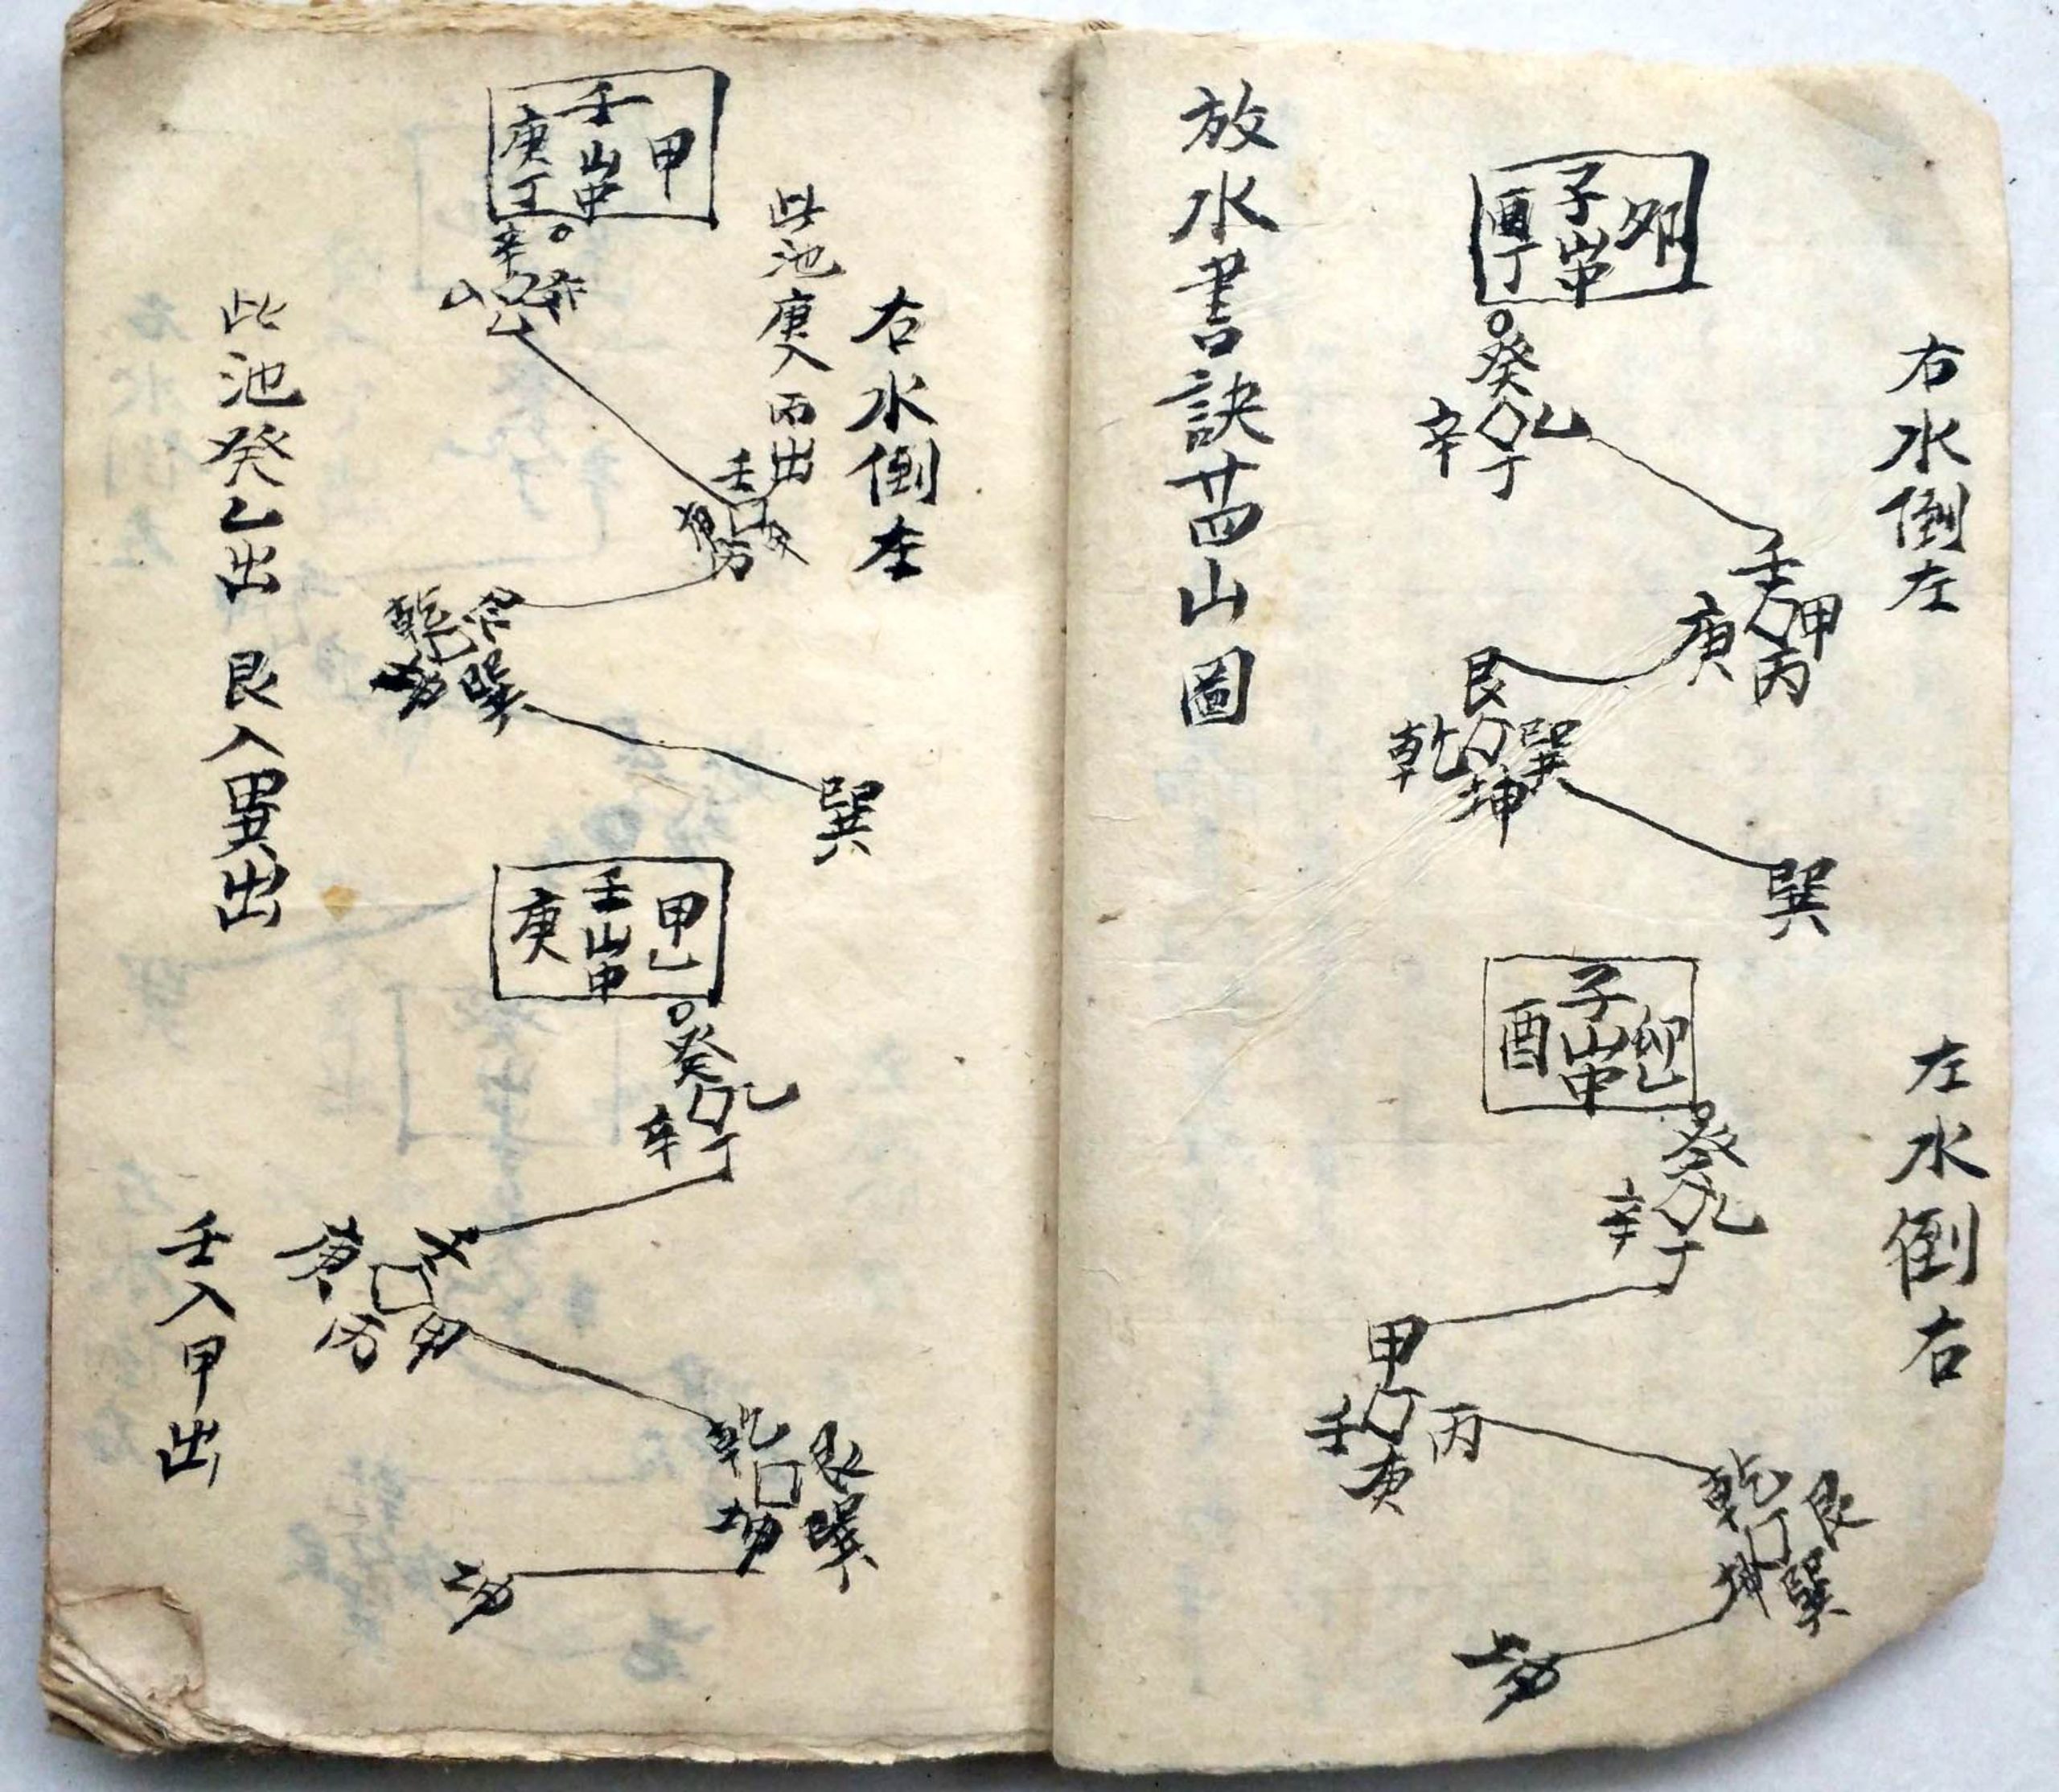 右水倒左
子
卯
山
酉
丁
癸
乙
辛
丁
壬
甲
庚
丙
艮
巽
乾
坤
巽
左水倒右
子
卯
乙
山
酉
癸
乙
辛
丁
甲
丙
壬
庚
乾
艮
坤
巽
坤
放水書訣廿四山圖
右水倒左
此池庚入丙出
壬
甲
山
庚
丁
辛
乙
壬
丙
艮
乾
巽
坤
巽
此池癸乙出 艮入巽出
壬
甲
乙
山
庚
癸
乙
辛
丁
壬
庚
甲
丙
乾
艮
坤
巽
坤
壬入甲出